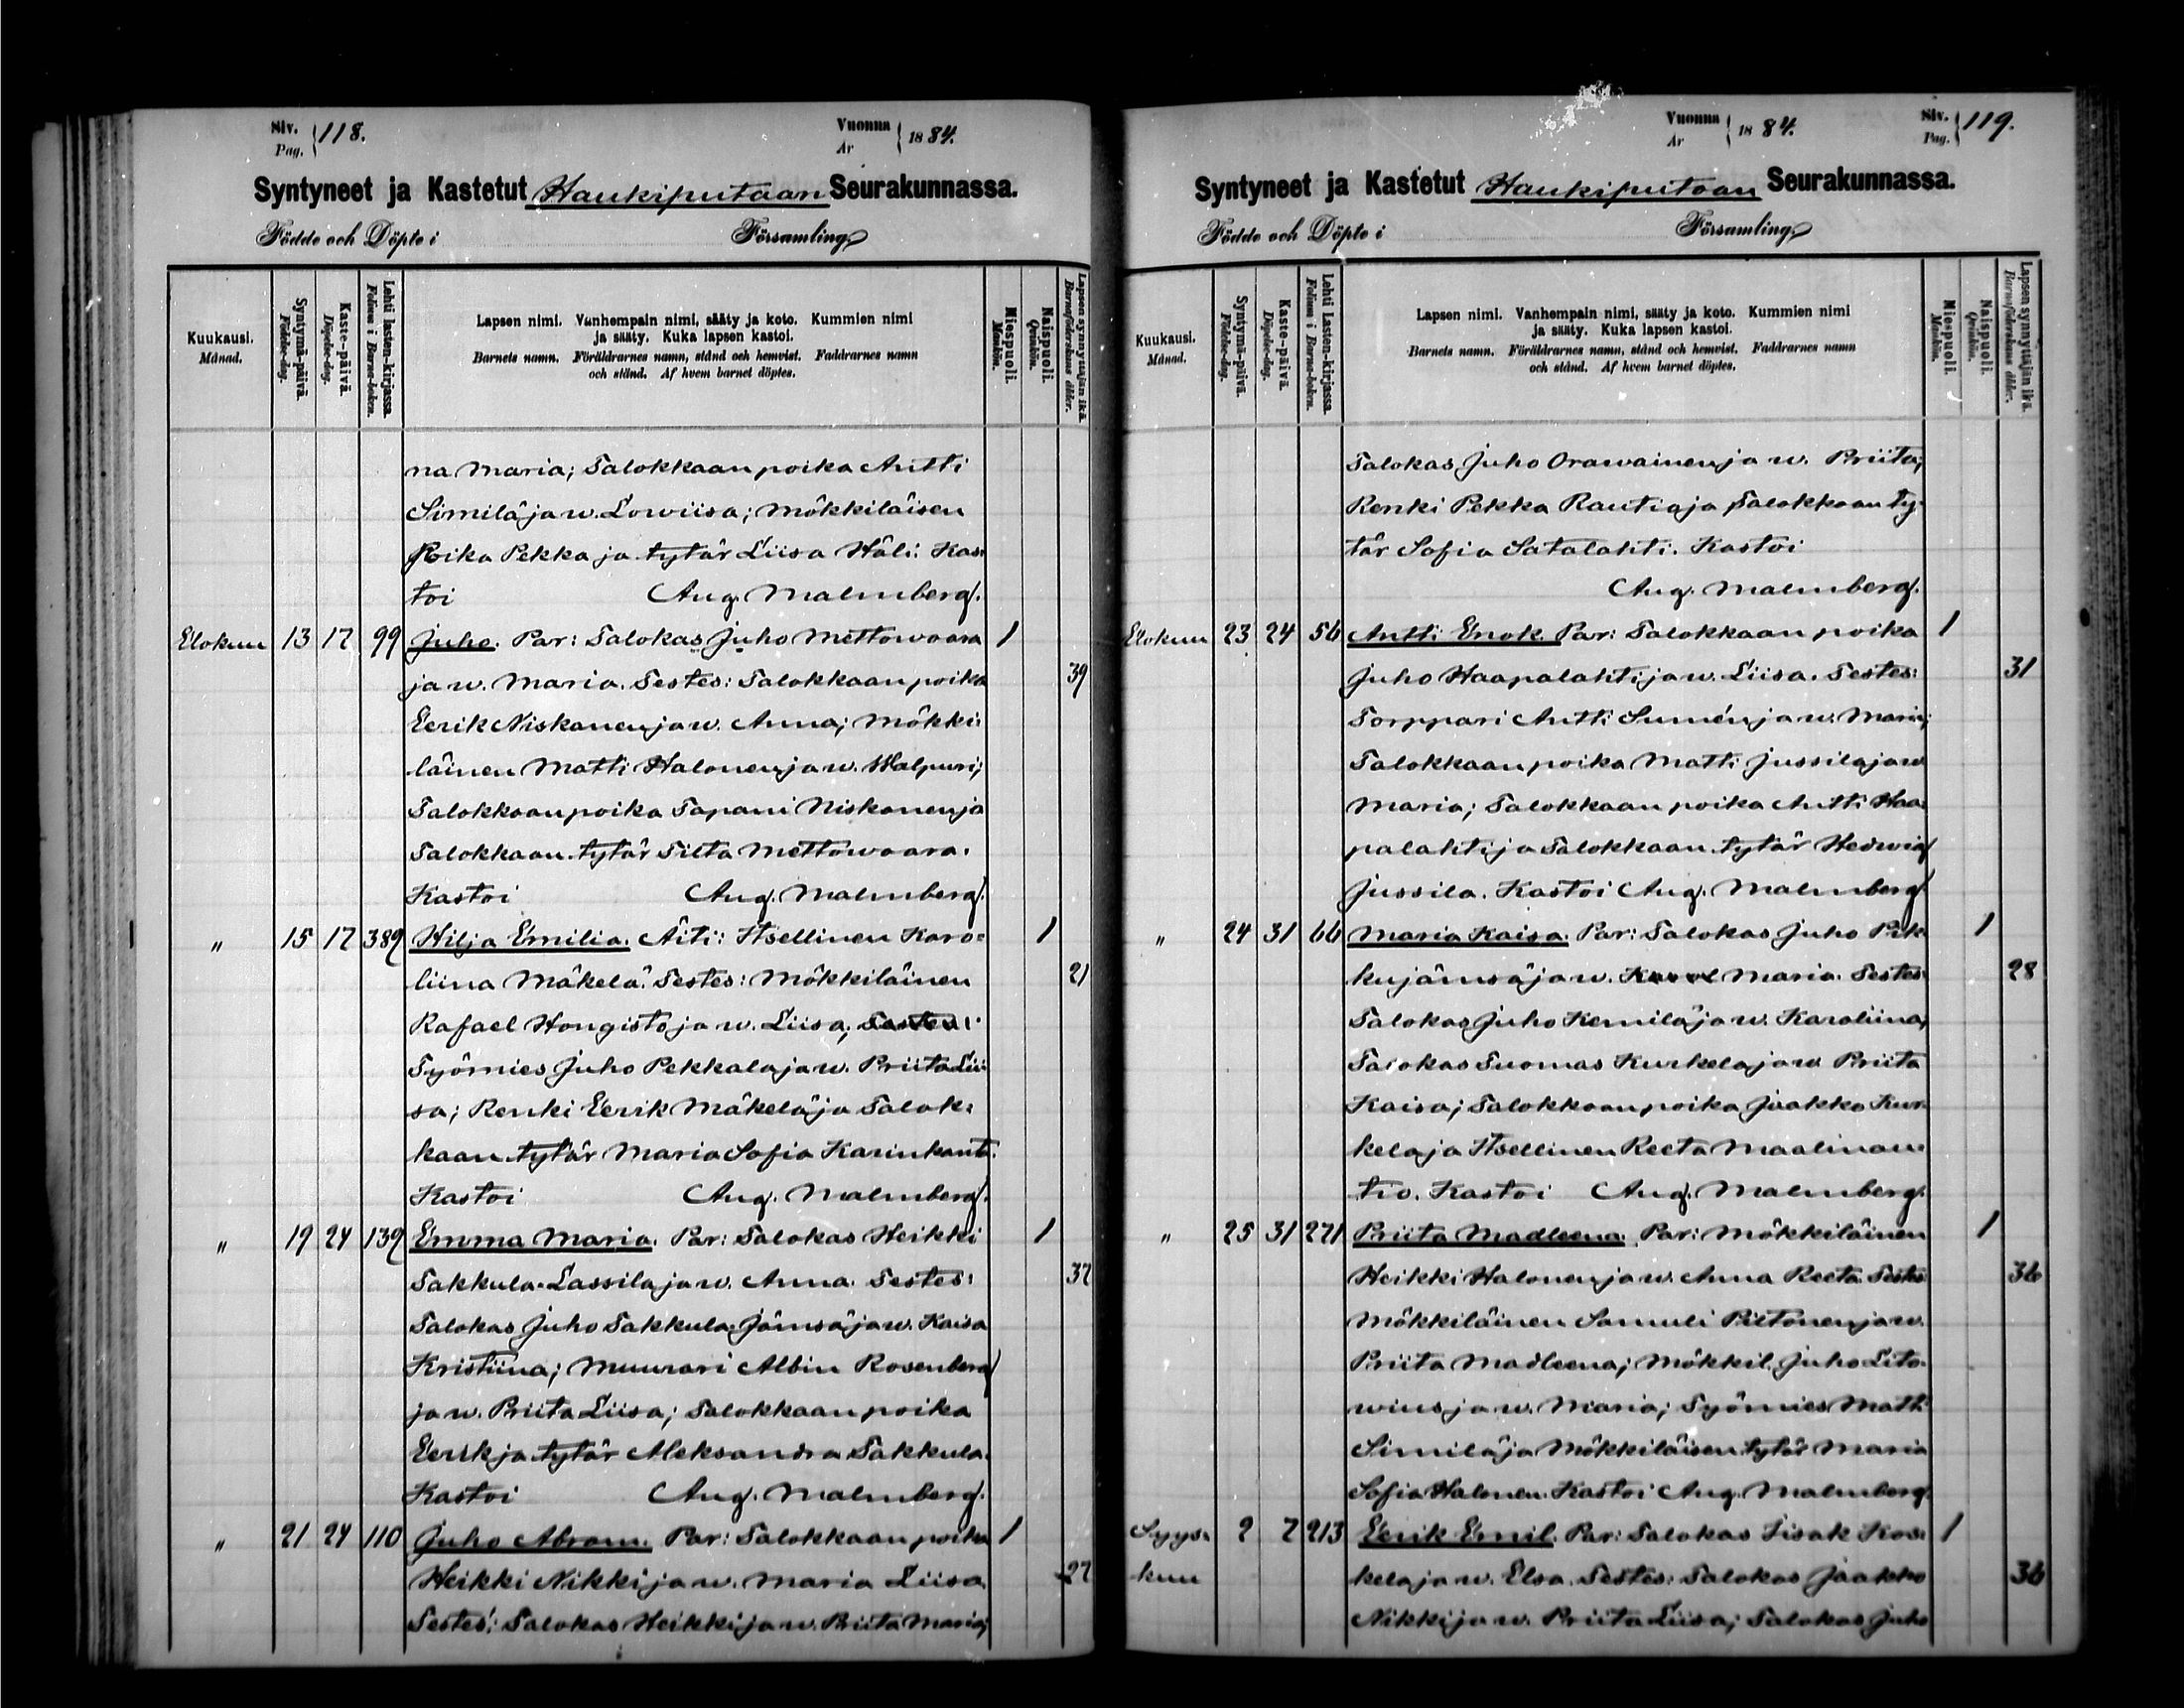 Siv.
Pag. 118.
Vuonna
År 1884.
Syntyneet ja Kastetut Haukiputaan Seurakunnassa.
Födde och Döpte i Församling
Kuukausi.
Månad.
Syntymä-päivä.
Födelse-dag.
Kaste-päivä.
Döpelse-dag.
Lehti lasten-kirjassa.
Folium i Barna-boken.
Lapsen nimi. Vanhempain nimi, sääty ja koto. Kummien nimi
ja sääty. Kuka lapsen kastoi.
Barnets namn. Föräldrarnes namn, stånd och hemvist. Faddrarnes namn
och stånd. Af hvem barnet döptes.
Miespuoli.
Mankön.
Naispuoli.
Qvinkön.
Lapsen synnyttäjän ikä.
Barnaföderskans ålder.
na Maria; Talokkaan poika Antti
Similä ja w. Lowiisa; Mökkiläisen
Poika Pekka ja tytär Liisa Häli. Kas-
toi Aug. Malmberg.
Elokuu 13 17 99 Juho. Par: Talokas Juho Mettowaara 1
ja w. Maria. Testes: Talokkaan poika 39
Eerik Niskanen ja w. Anna; Mökki-
läinen Matti Halonen ja w. Walpuri;
Talokkaan poika Tapani Niskanen ja
Talokkaan tytär Silta Mettowaara.
Kastoi Aug. Malmberg.
" 15 17 389 Hilja Emilia. Äiti: Itsellinen Karo- 1
liina Mäkelä. Testes: Mökkiläinen 21
Rafael Hongisto ja w. Liisa; Testes:
Työmies Juho Pekkala ja w. Priita Lii-
sa; Renki Eerik Mäkelä ja Talok-
kaan tytär Maria Sofia Karinkanta.
Kastoi Aug. Malmberg.
" 19 24 139 Emma Maria. Par: Talokas Heikki 1
Takkula-Lassila ja w. Anna. Testes: 37
Talokas Juho Takkula-Jämsä ja w. Kaisa
Kristiina; Muurari Albin Rosenberg
ja w. Priita Liisa; Talokkaan poika
Eerik ja tytär Aleksandra Takkula.
Kastoi Aug. Malmberg.
" 21 24 110 Juho Abram. Par: Talokkaan poika 1
Heikki Nikki ja w. Maria Liisa 27
Testes: Talokas Heikki ja w. Priita Maria;
Vuonna
År 1884.
Siv.
Pag. 119.
Syntyneet ja Kastetut Haukiputaan Seurakunnassa.
Födde och Döpte i Församling
Kuukausi.
Månad.
Syntymä-päivä.
Födelse-dag.
Kaste-päivä.
Döpelse-dag.
Lehti Lasten-kirjassa.
Folium i Barna-boken.
Lapsen nimi. Vanhempain nimi, sääty ja koto. Kummien nimi
ja sääty. Kuka lapsen kastoi.
Barnets namn. Föräldrarnes namn, stånd och hemvist. Faddrarnes namn
och stånd. Af hvem barnet döptes.
Miespuoli.
Mankön.
Naispuoli.
Qvinkön.
Lapsen synnyttäjän ikä.
Barnaföderskans ålder.
Talokas Juho Orawainen ja w. Priita;
Renki Pekka Rautia ja Talokkaan ty-
tär Sofia Satalahti. Kastoi
Aug. Malmberg.
Elokuu 23 24 56 Antti Enok. Par: Talokkaan poika 1
Juho Haapalahti ja w. Liisa. Testes: 31
Torppari Antti Sumén ja w. Maria;
Talokkaan poika Matti Jussila ja w
Maria; Talokkaan poika Antti Haa-
palahti ja Talokkaan tytär Hedwig
Jussila. Kastoi Aug. Malmberg.
" 24 31 66 Maria Kaisa. Par: Talokas Juho Pik- 1
kujämsä ja w. Maria. Testes: 28
Talokas Juho Kemilä ja w. Karoliina;
Talokas Tuomas Kurkela ja w Priita
Kaisa; Talokkaan poika Jaakko Kur-
kela ja Itsellinen Reeta Maalinau-
tio. Kastoi Aug. Malmberg.
" 25 31 271 Priita Madleena. Par: Mökkiläinen 1
Heikki Halonen ja w. Anna Reeta. Testes: 36
Mökkiläinen Samuli Piltonen ja w.
Priita Madleena; Mökkil. Juho Lito-
wius ja w. Maria; Työmies Matti
Similä ja Mökkiläisen tytär Maria
Sofia Halonen. Kastoi Aug. Malmberg.
Syys- 2 7 213 Eerik Emil. Par: Talokas Iisak Kos- 1
kuu kela ja w. Elsa. Testes: Talokas Jaakko 36
Nikki ja w. Priita Liisa; Talokas Juho